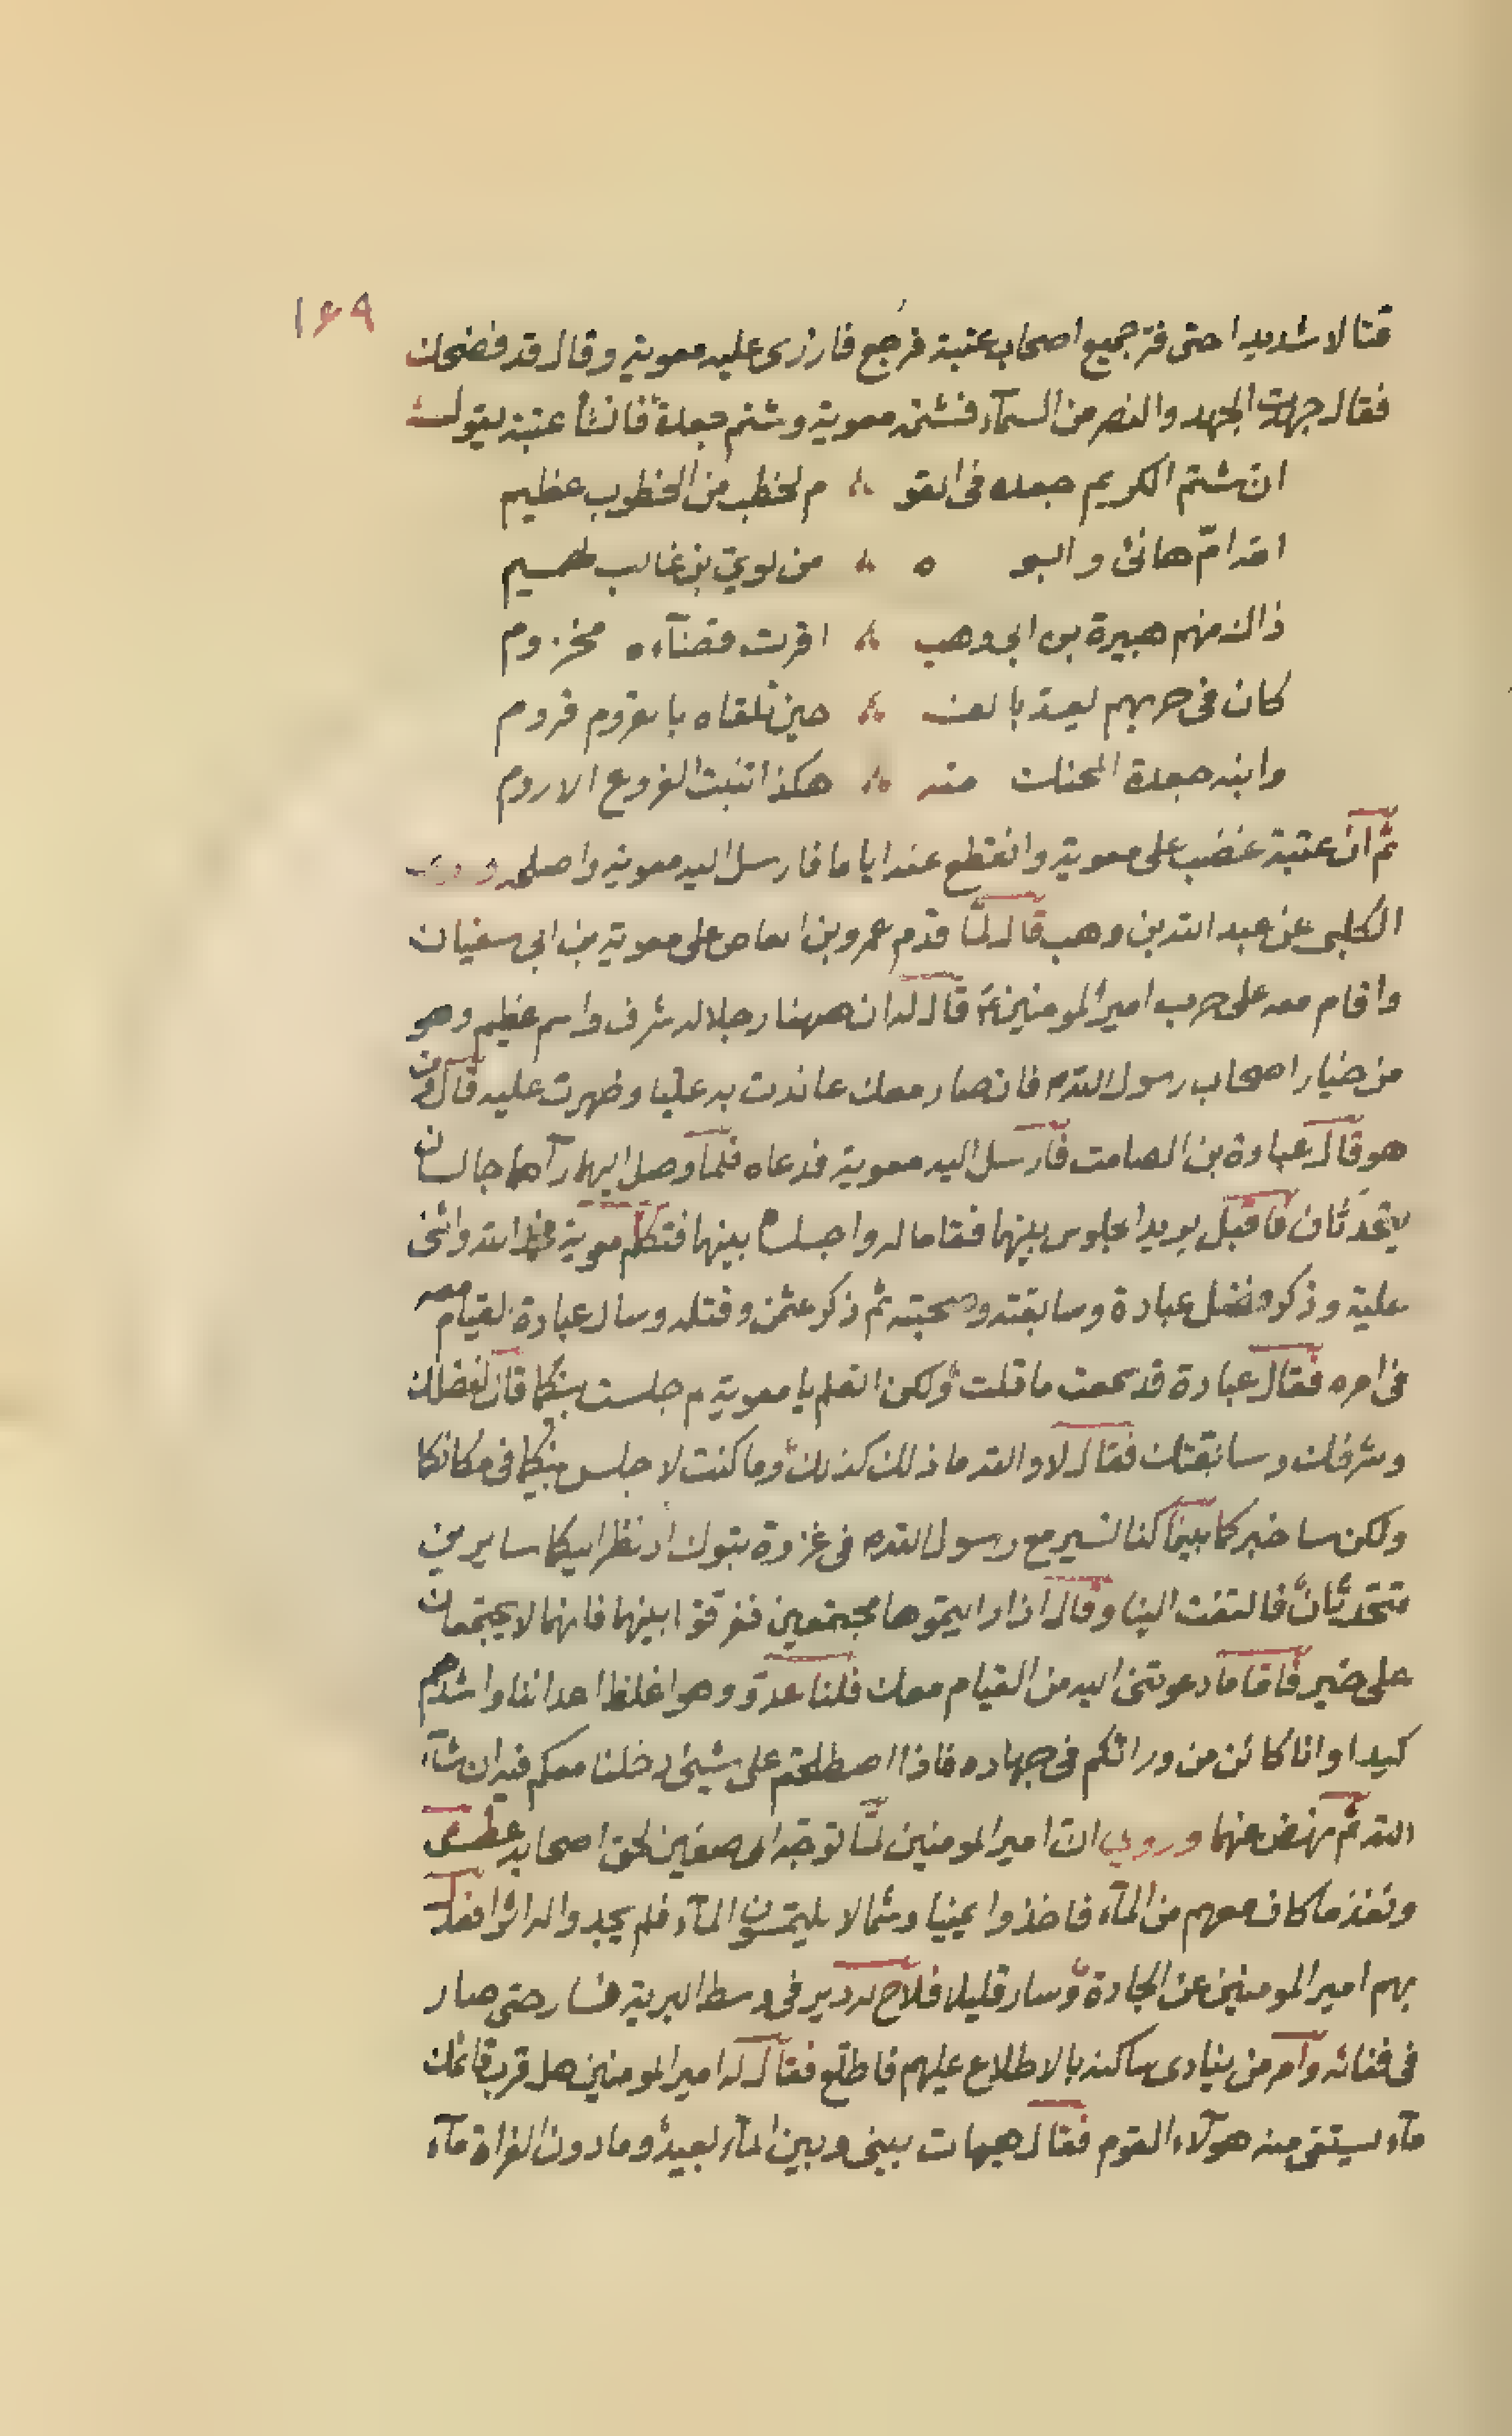 ١٦٩
قتالا شديدا حتى فرّ جميع اصحاب عتبة فرجع فازرى عليه معوية وقال قد فضحك
فقال جهدت الجهد والنصر من السمآء فشتمه معوية وشتم جعدة فانشأ عتبة يقول
ان شتم الكريم جعده فى القو م لخطب من الخطوب عظيم
امه امّ هانئ وابو ه من لوي بن غالب لصميم
ذاك منهم هبيرة بن ابى وهب اقرت بفضله مخزوم
كان فى حربهم يعدّ بالف حين تلقاه بالقروم قروم
وابنه جعدة منه هكذا تنبت الفروع الاروم
ثم ان عتبة غضب على معوية وانقطع عنه اياما فارسل اليه معوية واصلحه وروى
الكلبى عن عبد الله بن وهب قال لمّا قدم عمرو بن العاص على معوية بن ابى سفيان
واقام معه على حرب امير المومنين ع قال له ان ههنا رجلا له شرف واسم عظيم وهو
من خيار اصحاب رسول الله ص فان صار معك عاندت به عليا وظهرت عليه قال ومن
هو قال عبادة بن الصامت فارسل اليه معوية فدعاه فلما وصل اليهما رآهما جالسان
يتحدثان فاقبل يريد الجلوس بينهما فقاما له واجلساه بينهما فتكلم معوية فحمد الله واثنى
عليه وذكر فضل عبادة وسابقته وصحبته ثم ذكر عثمن وقتله وسال عبادة القيام معه
فى امره فقال عبادة قد سمعت ما قلت ولكن اتعلم يا معوية لم جلست بينكما قال لفضلك
وشرفك وسابقتك فقال لا والله ما ذلك كذلك وما كنت لاجلس بينكما فى مكانكما
ولكن ساخبركما بينا كنا نسير مع رسول الله ص فى غزوة تبوك اذ نظر اليكما سايرين
تتحدثان فالتفت الينا وقال اذا رايتموهما مجتمعين ففرقوا بينهما فانهما لا يجتمعان
على خير فاما ما دعوتنى اليه من القيام معك فلنا عدوّ وهو اغلظ اعدائنا واشدهم
كيدا وانا كائن من ورائكم فى جهاده فاذا اصطلحتم على شيئ دخلنا معكم فيه ان شآء
الله ثم نهض عنهما وروي ان امير المومنين لمّا توجّه الى صفين لحق اصحابه عطش
ونفذ ما كان معهم من المآء فاخذوا يمينا وشمالا يلتمسون المآء فلم يجدوا له اثرا فعدل
بهم امير المومنين عن الجادة وسار قليلا فلاح له دير فى وسط البرية فسار حتى صار
فى فنائه وامر من ينادى ساكنه بالاطلاع عليهم فاطلع فقال له امير المومنين هل قرب قائمك
مآء يستقى منه هولآء القوم فقال هيهات بينى وبين المآء بعيد وما دون الفراة مآء